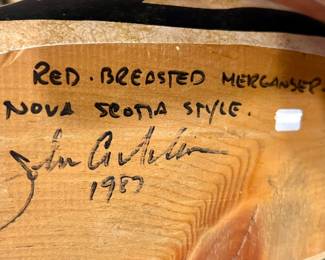 RED. BREASTED MERGANSER.
NOVA SCOTIA STYLE.
John
1987